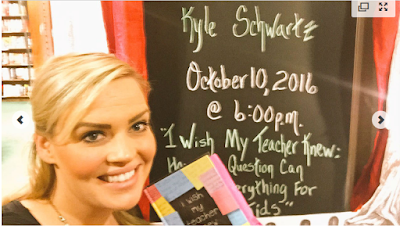 Kyle Schwartz
October 10, 2016
@ 6:00 p.m.
"I Wish My Teacher Knew:
Question Can
verything For
ids"
I wish
my
teacher